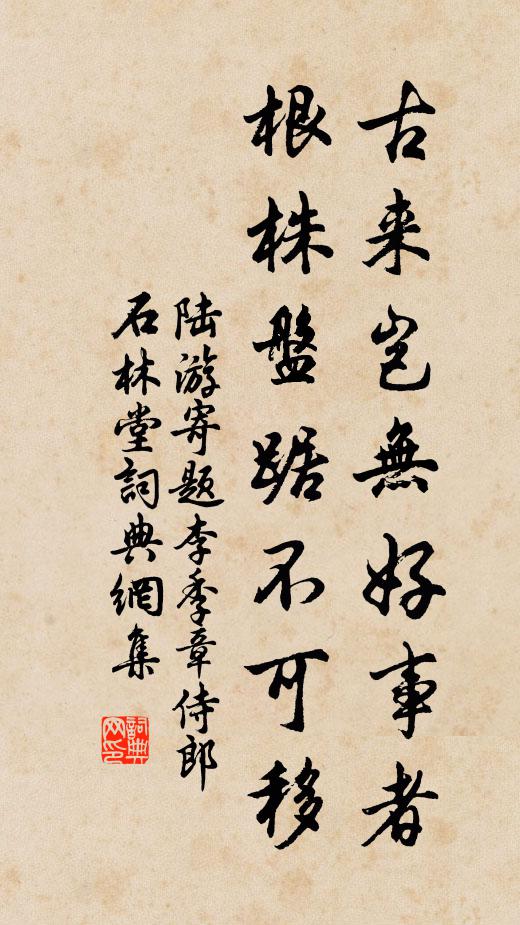 古来豈無好事者
根株盤踞不可移
陆游寄题李季章侍郎
石林堂詞典網集
詞典
网印